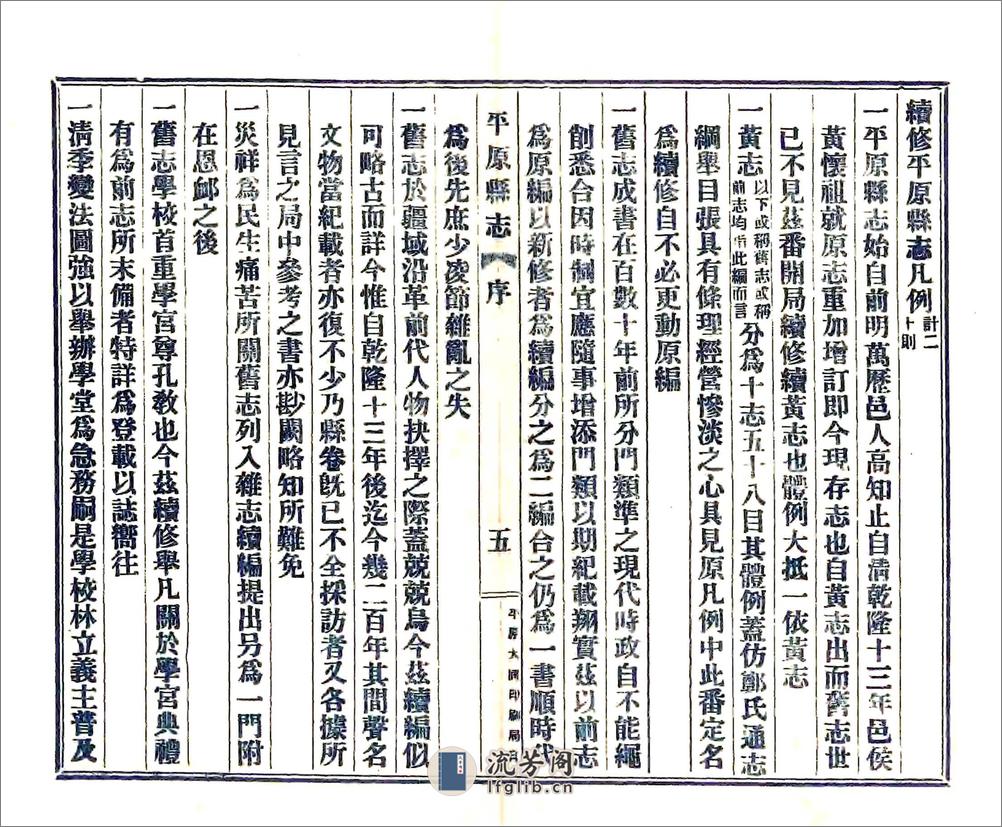 續修平原縣志凡例計二十則
一平原縣志始自前明萬歷邑人高知止自淸乾隆十三年邑侯
黃懷祖就原志重加增訂卽今現存志也自黃志出而舊志世
已不見茲番開局續修續黃志也體例大抵一依黃志
一黃志以下或稱舊志或稱前志均指此編而言分爲十志五十八目其體例蓋仿鄭氏通志
綱舉目張具有條理經營慘淡之心具見原凡例中此番定名
爲續修自不必更動原編
一舊志成書在百數十年前所分門類準之現代時政自不能繩
削悉合因時制宜應隨事增添門類以期紀載翔實茲以前志
爲原編以新修者爲續編分之爲二編合之仍爲一書順時代
爲後先庶少凌節雜亂之失
平原縣志 序 五 平原大同印刷局
一舊志於疆域沿革前代人物抉擇之際蓋兢兢焉今茲續編似
可略古而詳今惟自乾隆十三年後迄今幾二百年其間聲名
文物當紀載者亦復不少乃縣卷旣已不全採訪者又各據所
見言之局中參考之書亦尟闕略知所難免
一災祥爲民生痛苦所關舊志列入雜志續編提出另爲一門附
在恩䘏之後
一舊志學校首重學宮尊孔敎也今茲續修舉凡關於學宮典禮
有爲前志所未備者特詳爲登載以誌嚮往
一淸季變法圖強以舉辦學堂爲急務嗣是學校林立義主普及
流芳阁
lfglib.cn